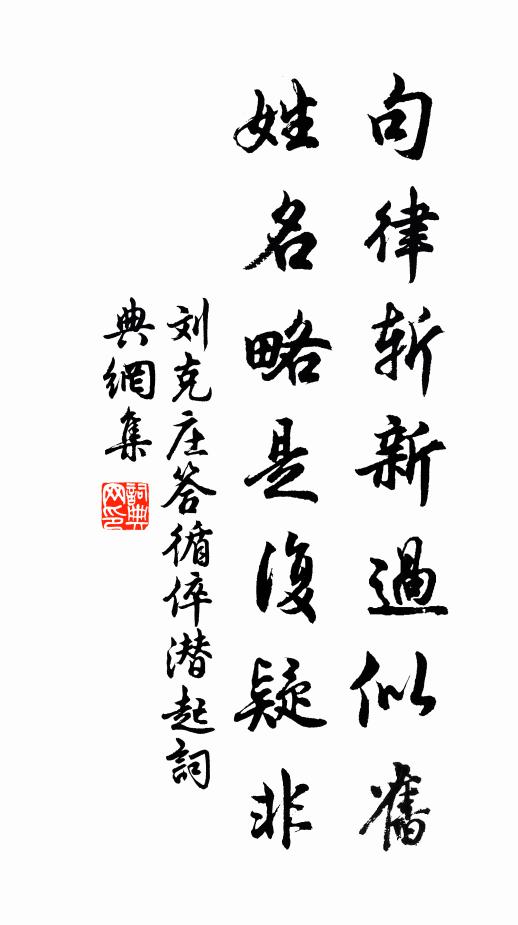 句律斬新過似舊
姓名略是復疑非
刘克庄答循倅潜起詞
典網集
詞典网印